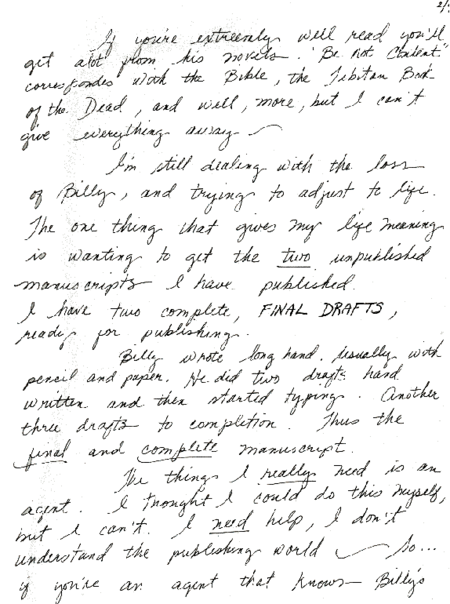 2/
If you're extreemly well read you'll
get alot from his novels. "Be Not Content"
correspondes with the Bible, the Tibetan Book
of the Dead, and well, more, but I can't
give everything away —
I'm still dealing with the loss
of Billy, and trying to adjust to life.
The one thing that gives my life meaning
is wanting to get the two unpublished
manuscripts I have published.
I have two complete, FINAL DRAFTS,
ready for publishing.
Billy wrote long hand. Usually with
pencil and paper. He did two drafts hand
written and then started typing. Another
three drafts to completion. Thus the
final and complete manuscript.
The things I really need is an
agent. I thought I could do this myself,
but I can't. I need help, I don't
understand the publishing world — So...
if you're an agent that knows Billy's